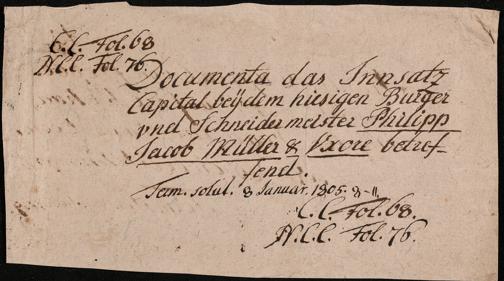 C.C. Fol. 68
N.C.C. Fol. 76
Documenta das Innsatz
Capital beÿ dem hiesigen Burger
vnd Schneidermeister Philipp
Jacob Müller & Vxore betref-
fend.
Term. solut. 8 Januar. 1805. 8-11.
C.C. Fol. 68.
N.C.C. Fol. 76.